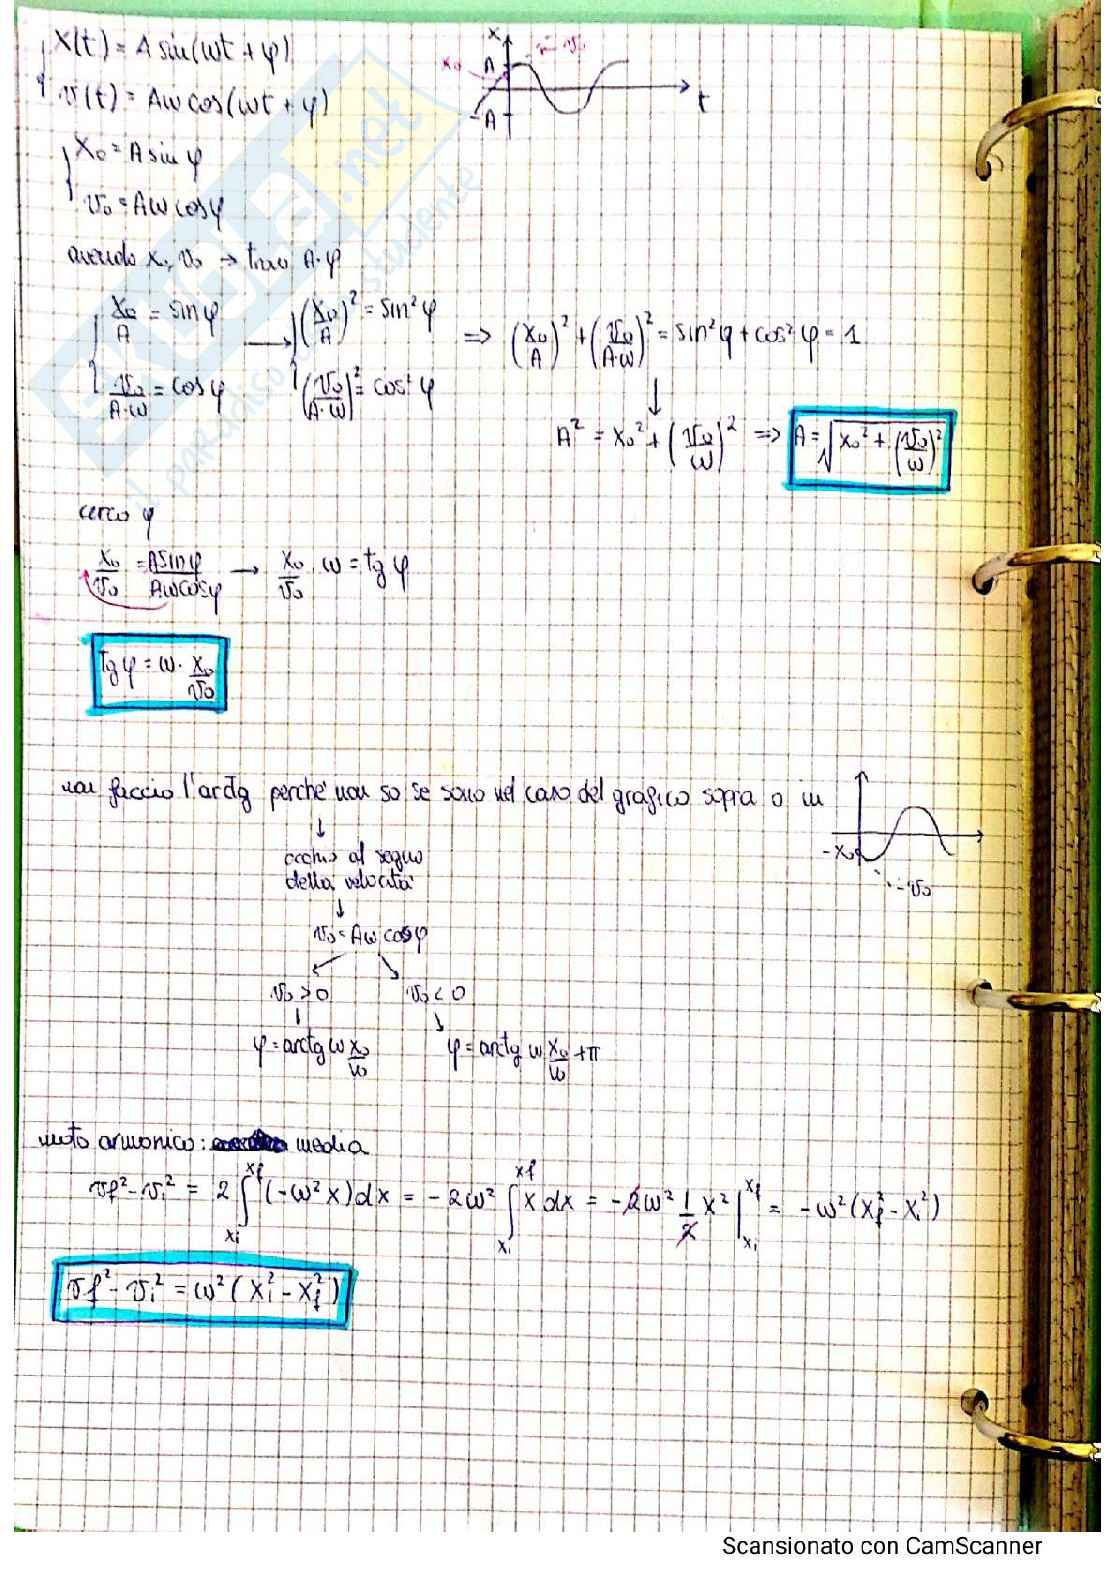 x(t) = A sin(ωt + φ)
v(t) = Aω cos(ωt + φ)
x
A
x₀
v₀
-A
t
x₀ = A sin φ
v₀ = Aω cos φ
avendo x₀, v₀ → trovo A, φ
x₀/A = sin φ → (x₀/A)² = sin² φ ⇒ (x₀/A)² + (v₀/A·ω)² = sin² φ + cos² φ = 1
v₀/A·ω = cos φ (v₀/A·ω)² = cos² φ
↓
A² = x₀² + (v₀/ω)² ⇒ A = √(x₀² + (v₀/ω)²)
cerco φ
x₀/v₀ = A sin φ/Aω cos φ → x₀/v₀ · ω = tg φ
tg φ = ω · x₀/v₀
non faccio l'arctg perché non so se sono nel caso del grafico sopra o in
-x₀
-v₀
↓
occhio al segno
della velocità
↓
v₀ = Aω cos φ
v₀ > 0 v₀ < 0
↓ ↓
φ = arctg ω x₀/v₀ φ = arctg ω x₀/v₀ + π
moto armonico: media
vf² - vi² = 2 ∫xi^xf (-ω² x) dx = -2ω² ∫xi^xf x dx = -2ω² 1/2 x² |xi^xf = -ω² (xf² - xi²)
vf² - vi² = ω² (xi² - xf²)
SKUOLA.net
il paradiso dello studente
Scansionato con CamScanner